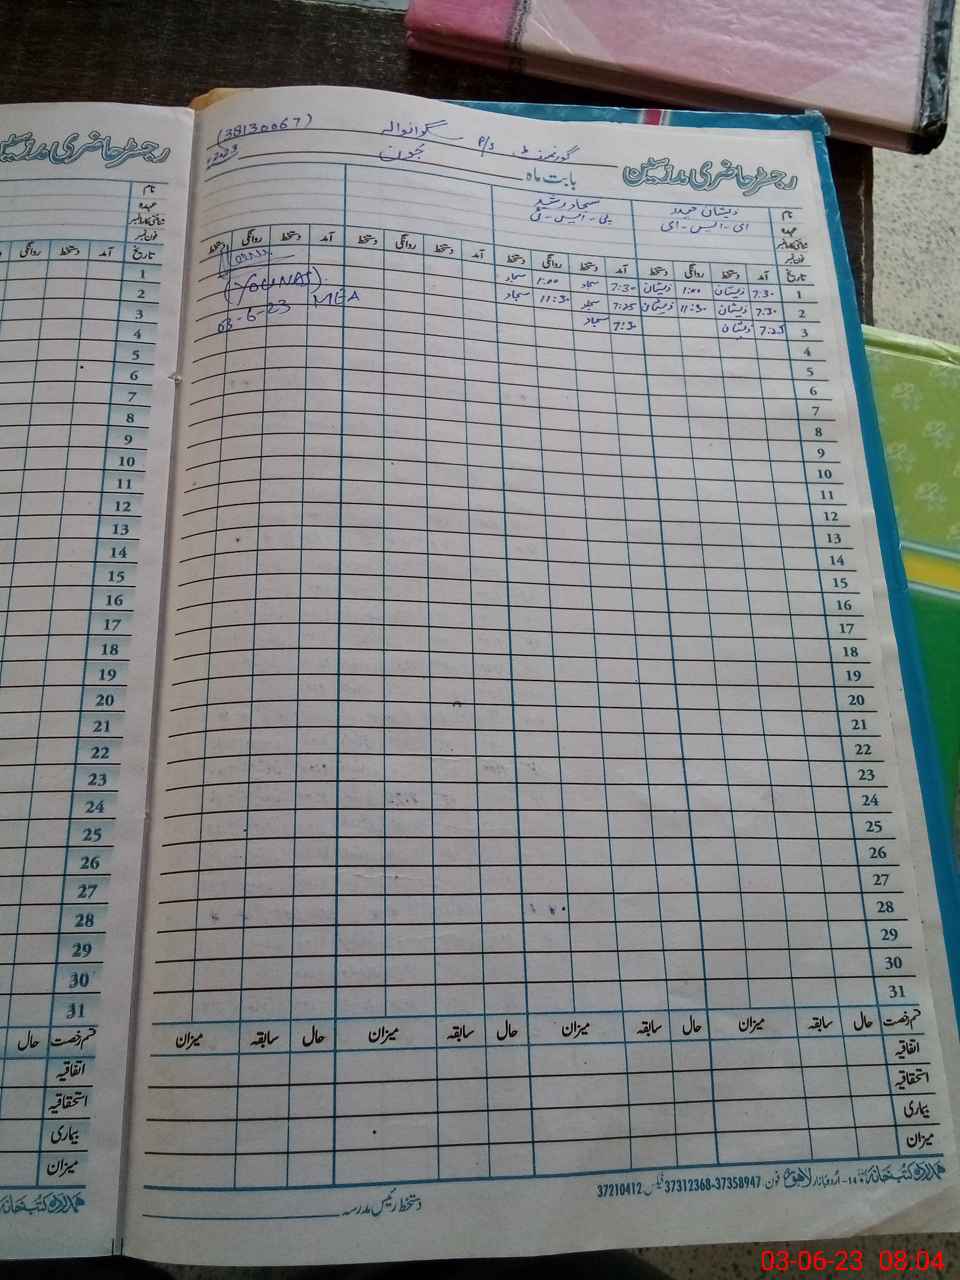 رجسٹر حاضری مدرسین
گورنمنٹ P/S سگوانوالہ (38130067)
بابت ماہ جون 2023
نام ذیشان حیدر سجاد رشید
عہدہ ای-ایس-ای پی-ایس-ٹی
شناختی کارڈ نمبر
فون نمبر
تاریخ آمد دستخط روانگی دستخط آمد دستخط روانگی دستخط آمد دستخط روانگی دستخط آمد دستخط روانگی دستخط
1 7:30 ذیشان 1:00 ذیشان 7:30 سجاد 1:00 سجاد
2 7:30 ذیشان 11:30 ذیشان 7:25 سجاد 11:30 سجاد
3 7:25 ذیشان 7:30 سجاد
(YOUNAS)
MEA
03-6-23
4
5
6
7
8
9
10
11
12
13
14
15
16
17
18
19
20
21
22
23
24
25
26
27
28
29
30
31
قسم رخصت حال سابقہ میزان حال سابقہ میزان حال سابقہ میزان حال سابقہ میزان
اتفاقیہ
استحقاقیہ
بیماری
میزان
ہمدرد کتب خانہ 14-اردو بازار لاہور فون 37358947-37312368 فیکس 37210412
دستخط رئیس مدرسہ
رجسٹر حاضری مدرسین
نام
عہدہ
شناختی کارڈ نمبر
فون نمبر
تاریخ آمد دستخط روانگی
1
2
3
4
5
6
7
8
9
10
11
12
13
14
15
16
17
18
19
20
21
22
23
24
25
26
27
28
29
30
31
قسم رخصت حال
اتفاقیہ
استحقاقیہ
بیماری
میزان
ہمدرد کتب خانہ
03-06-23 08:04